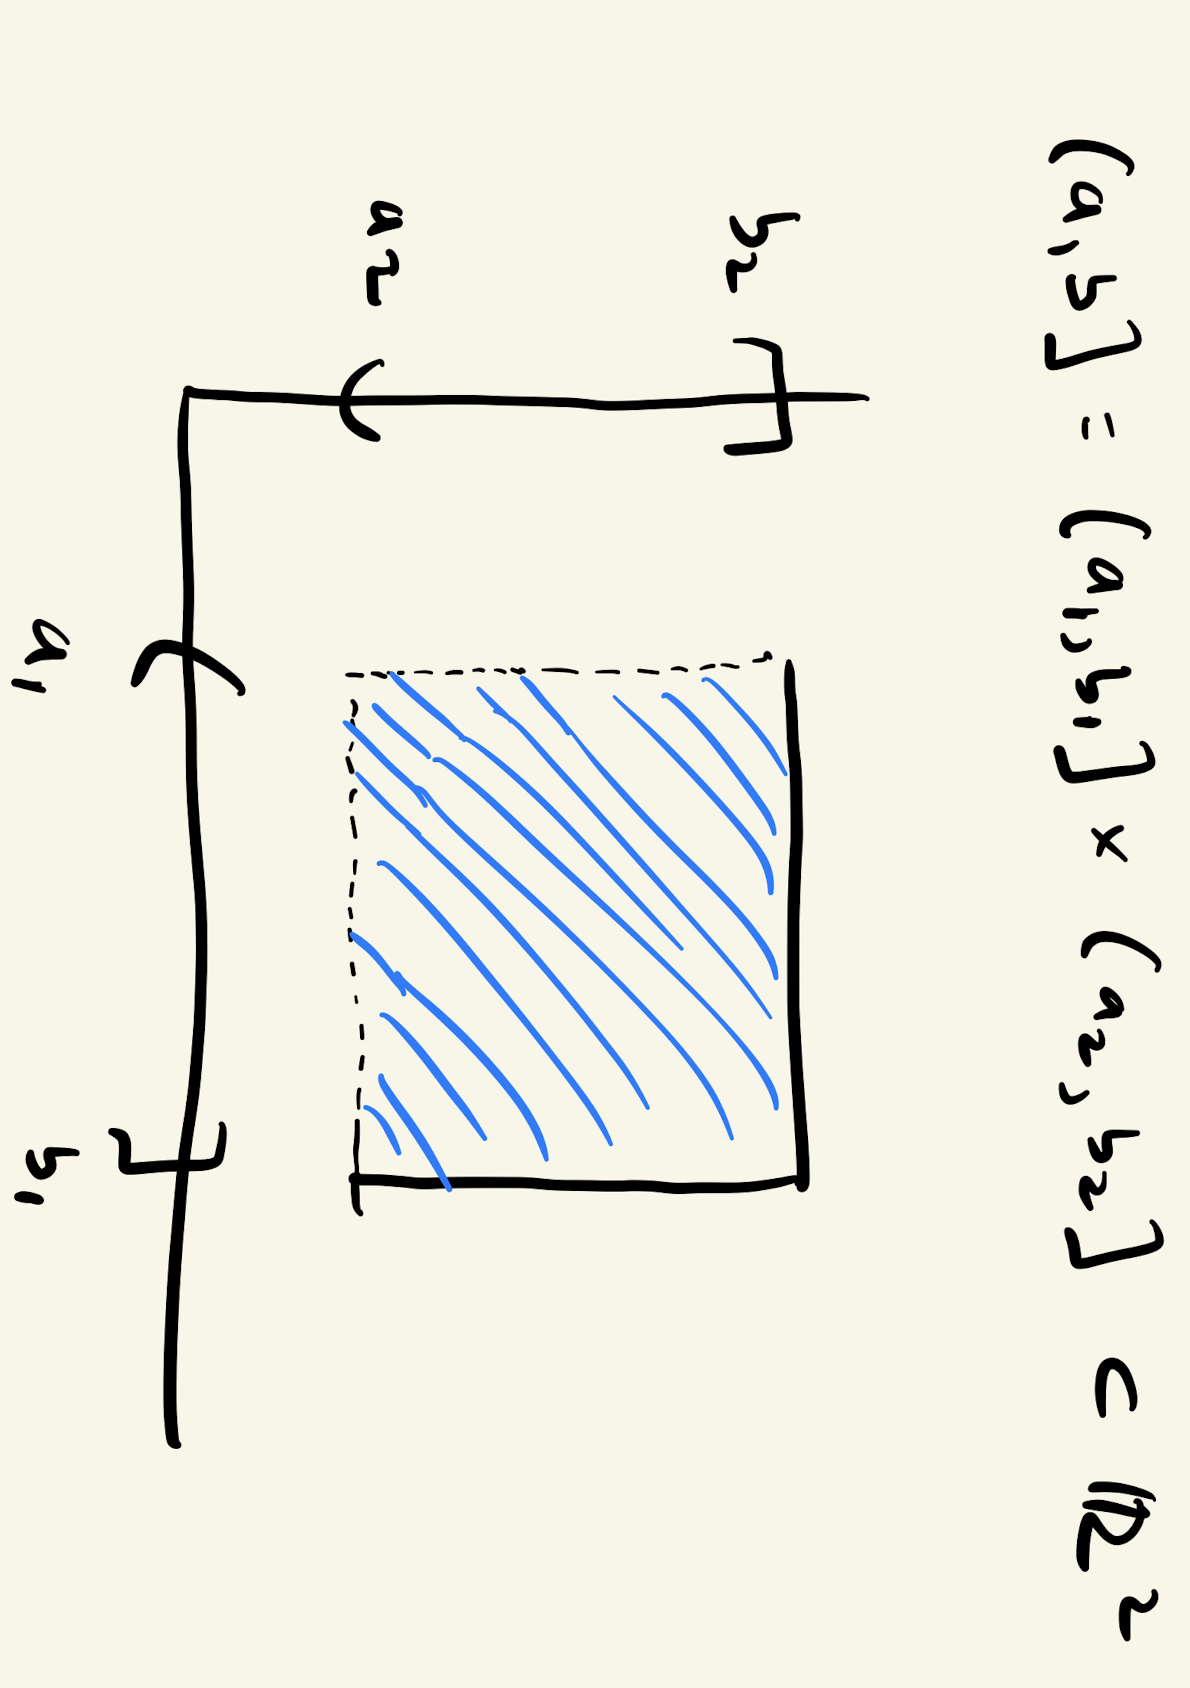 (a,b] = (a₁,b₁] × (a₂,b₂] ⊂ ℝ²
b₂
a₂
a₁ b₁